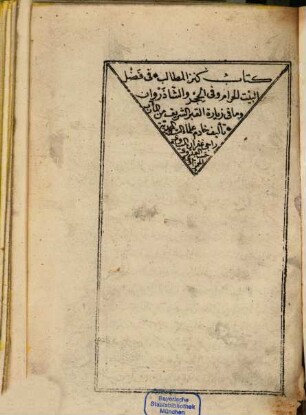 كتاب كنز المطالب في فضل
البيت الحرام وفي الحجر والشاذروان
وما في زيارة القبر الشريف من المآرب
تأليف خادم
راجي
Bayerische
Staatsbibliothek
München